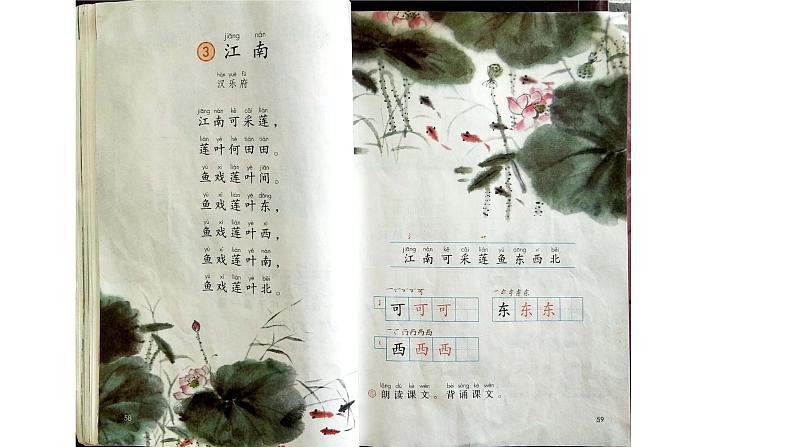 jiāng nán
3 江南
hàn yuè fǔ
汉乐府
jiāng nán kě cǎi lián
江南可采莲，
lián yè hé tián tián
莲叶何田田。
yú xì lián yè jiān
鱼戏莲叶间。
yú xì lián yè dōng
鱼戏莲叶东，
yú xì lián yè xī
鱼戏莲叶西，
yú xì lián yè nán
鱼戏莲叶南，
yú xì lián yè běi
鱼戏莲叶北。
58
jiāng nán kě cǎi lián yú dōng xī běi
江南可采莲鱼东西北
可可可
东东东
西西西
lǎng dú kè wén bèi sòng kè wén
朗读课文。背诵课文。
59